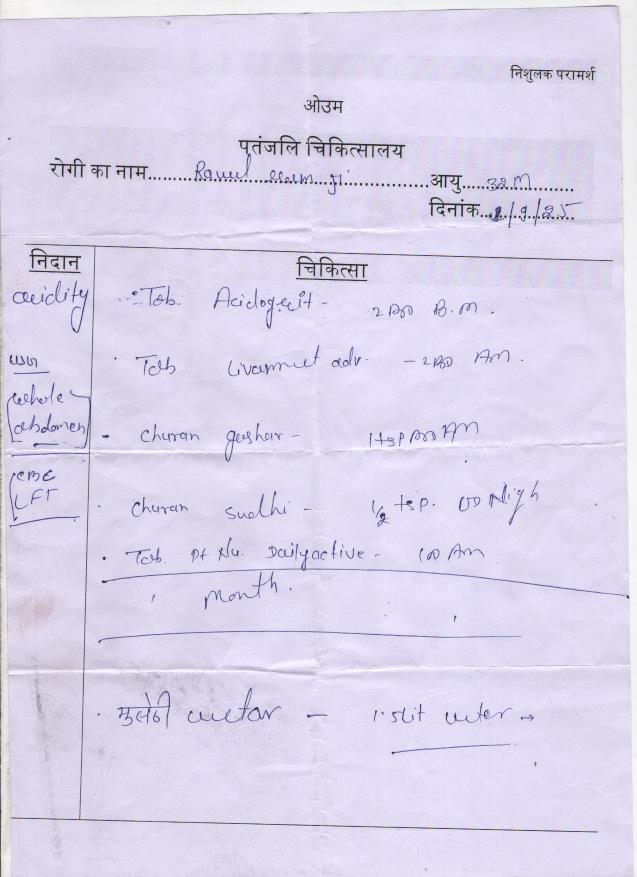 निशुलक परामर्श
ओउम
पतंजलि चिकित्सालय
रोगी का नाम.................ji.................आयु.....32M.........
दिनांक...1/9/25
निदान चिकित्सा
acidity Tab. Acidogrit - 2 BD B.M.
Tab Livamrit adv. - 2 BD AM.
whole abdomen
- Churan gashar - 1 tsp BD AM
CBC
LFT
Churan Sudhi - 1/2 tsp. OD Nigh
Tab. Pt Nu. Dailyactive - 1 OD AM
1 month.
मुलेठी - 1